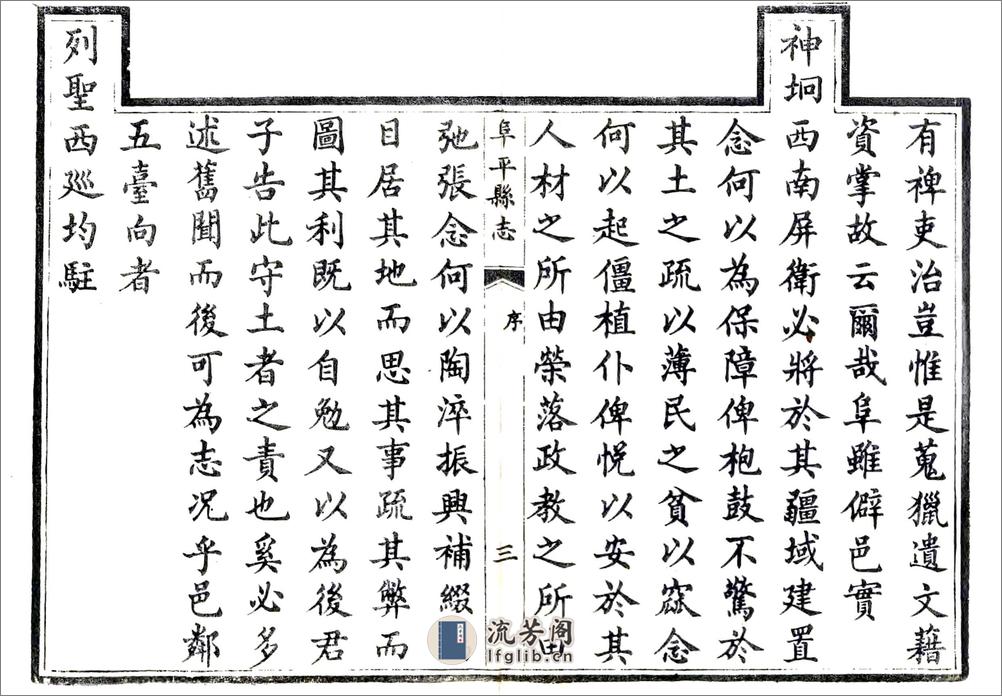 有裨吏治豈惟是蒐獵遺文藉
資掌故云爾哉阜雖僻邑實
神坰西南屏衛必將於其疆域建置
念何以為保障俾枹鼓不驚於
其土之疏以薄民之貧以窳念
何以起僵植仆俾悅以安於其
人材之所由榮落政教之所由
阜平縣志 序 三
弛張念何以陶淬振興補綴
目居其地而思其事疏其弊而
圖其利既以自勉又以為後君
子告此守土者之責也奚必多
述舊聞而後可為志况乎邑鄰
五臺向者
列聖西廵均駐
流芳阁
lfglib.cn